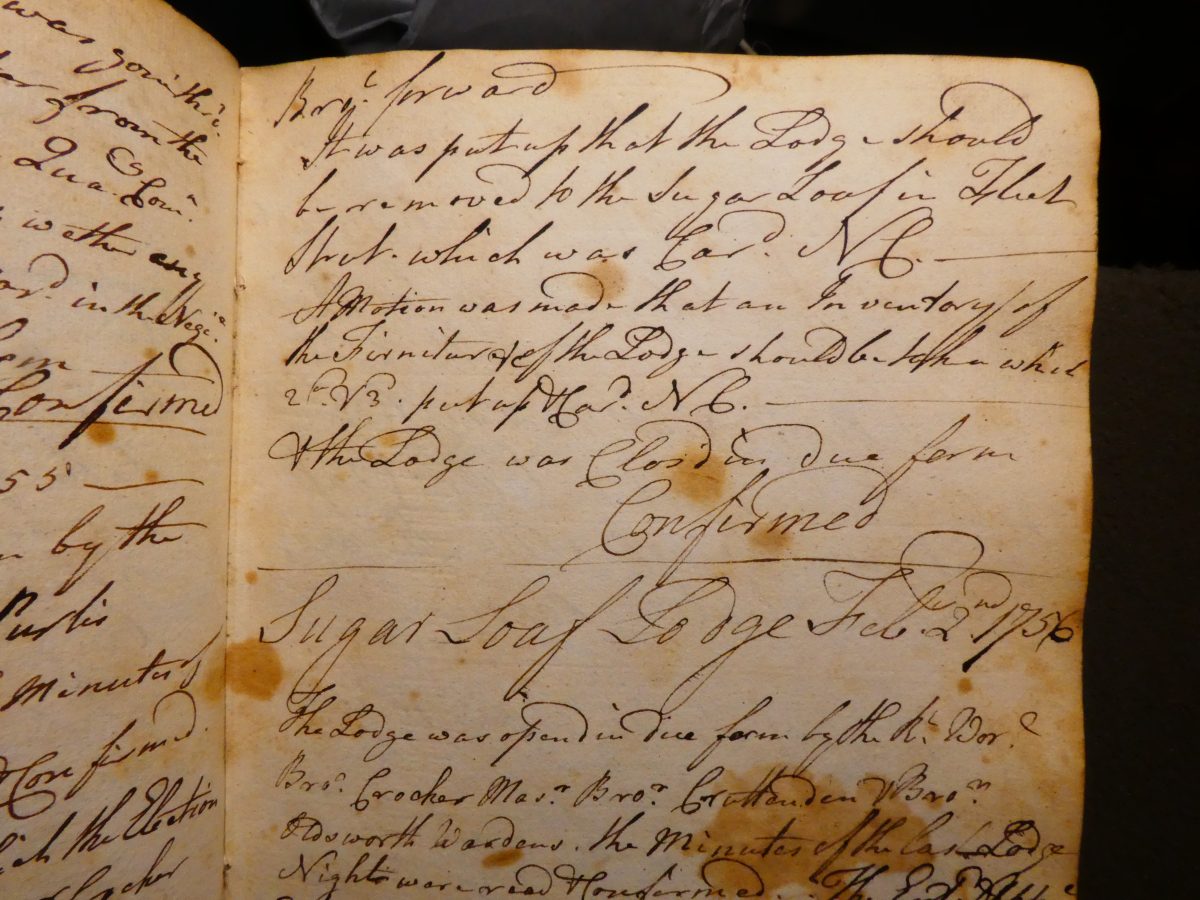 was
from the
Qua. Com.
wether any
in the
Confirmed
55
by the
Curtis
Minutes
Confirmed
the Election
Crocker
Bro.t forward
It was put up that the Lodge should
be removed to the Sugar Loaf in Fleet
Stret. which was Car.d NC.
A Motion was made that an Inventory of
the Firniture of the Lodge should be taken which
put up & Car.d NC.
& the Lodge was Clos'd in due form
Confirmed
Sugar Loaf Lodge Feb.ry 2nd 1756
The Lodge was open'd in due form by the R.t Wor.l
Bro.r Crocker Mas.r Bro.r Cruttenden & Bro.r
Oldsworth Wardens. the Minutes of the last Lodge
Night were read & Confirmed. The